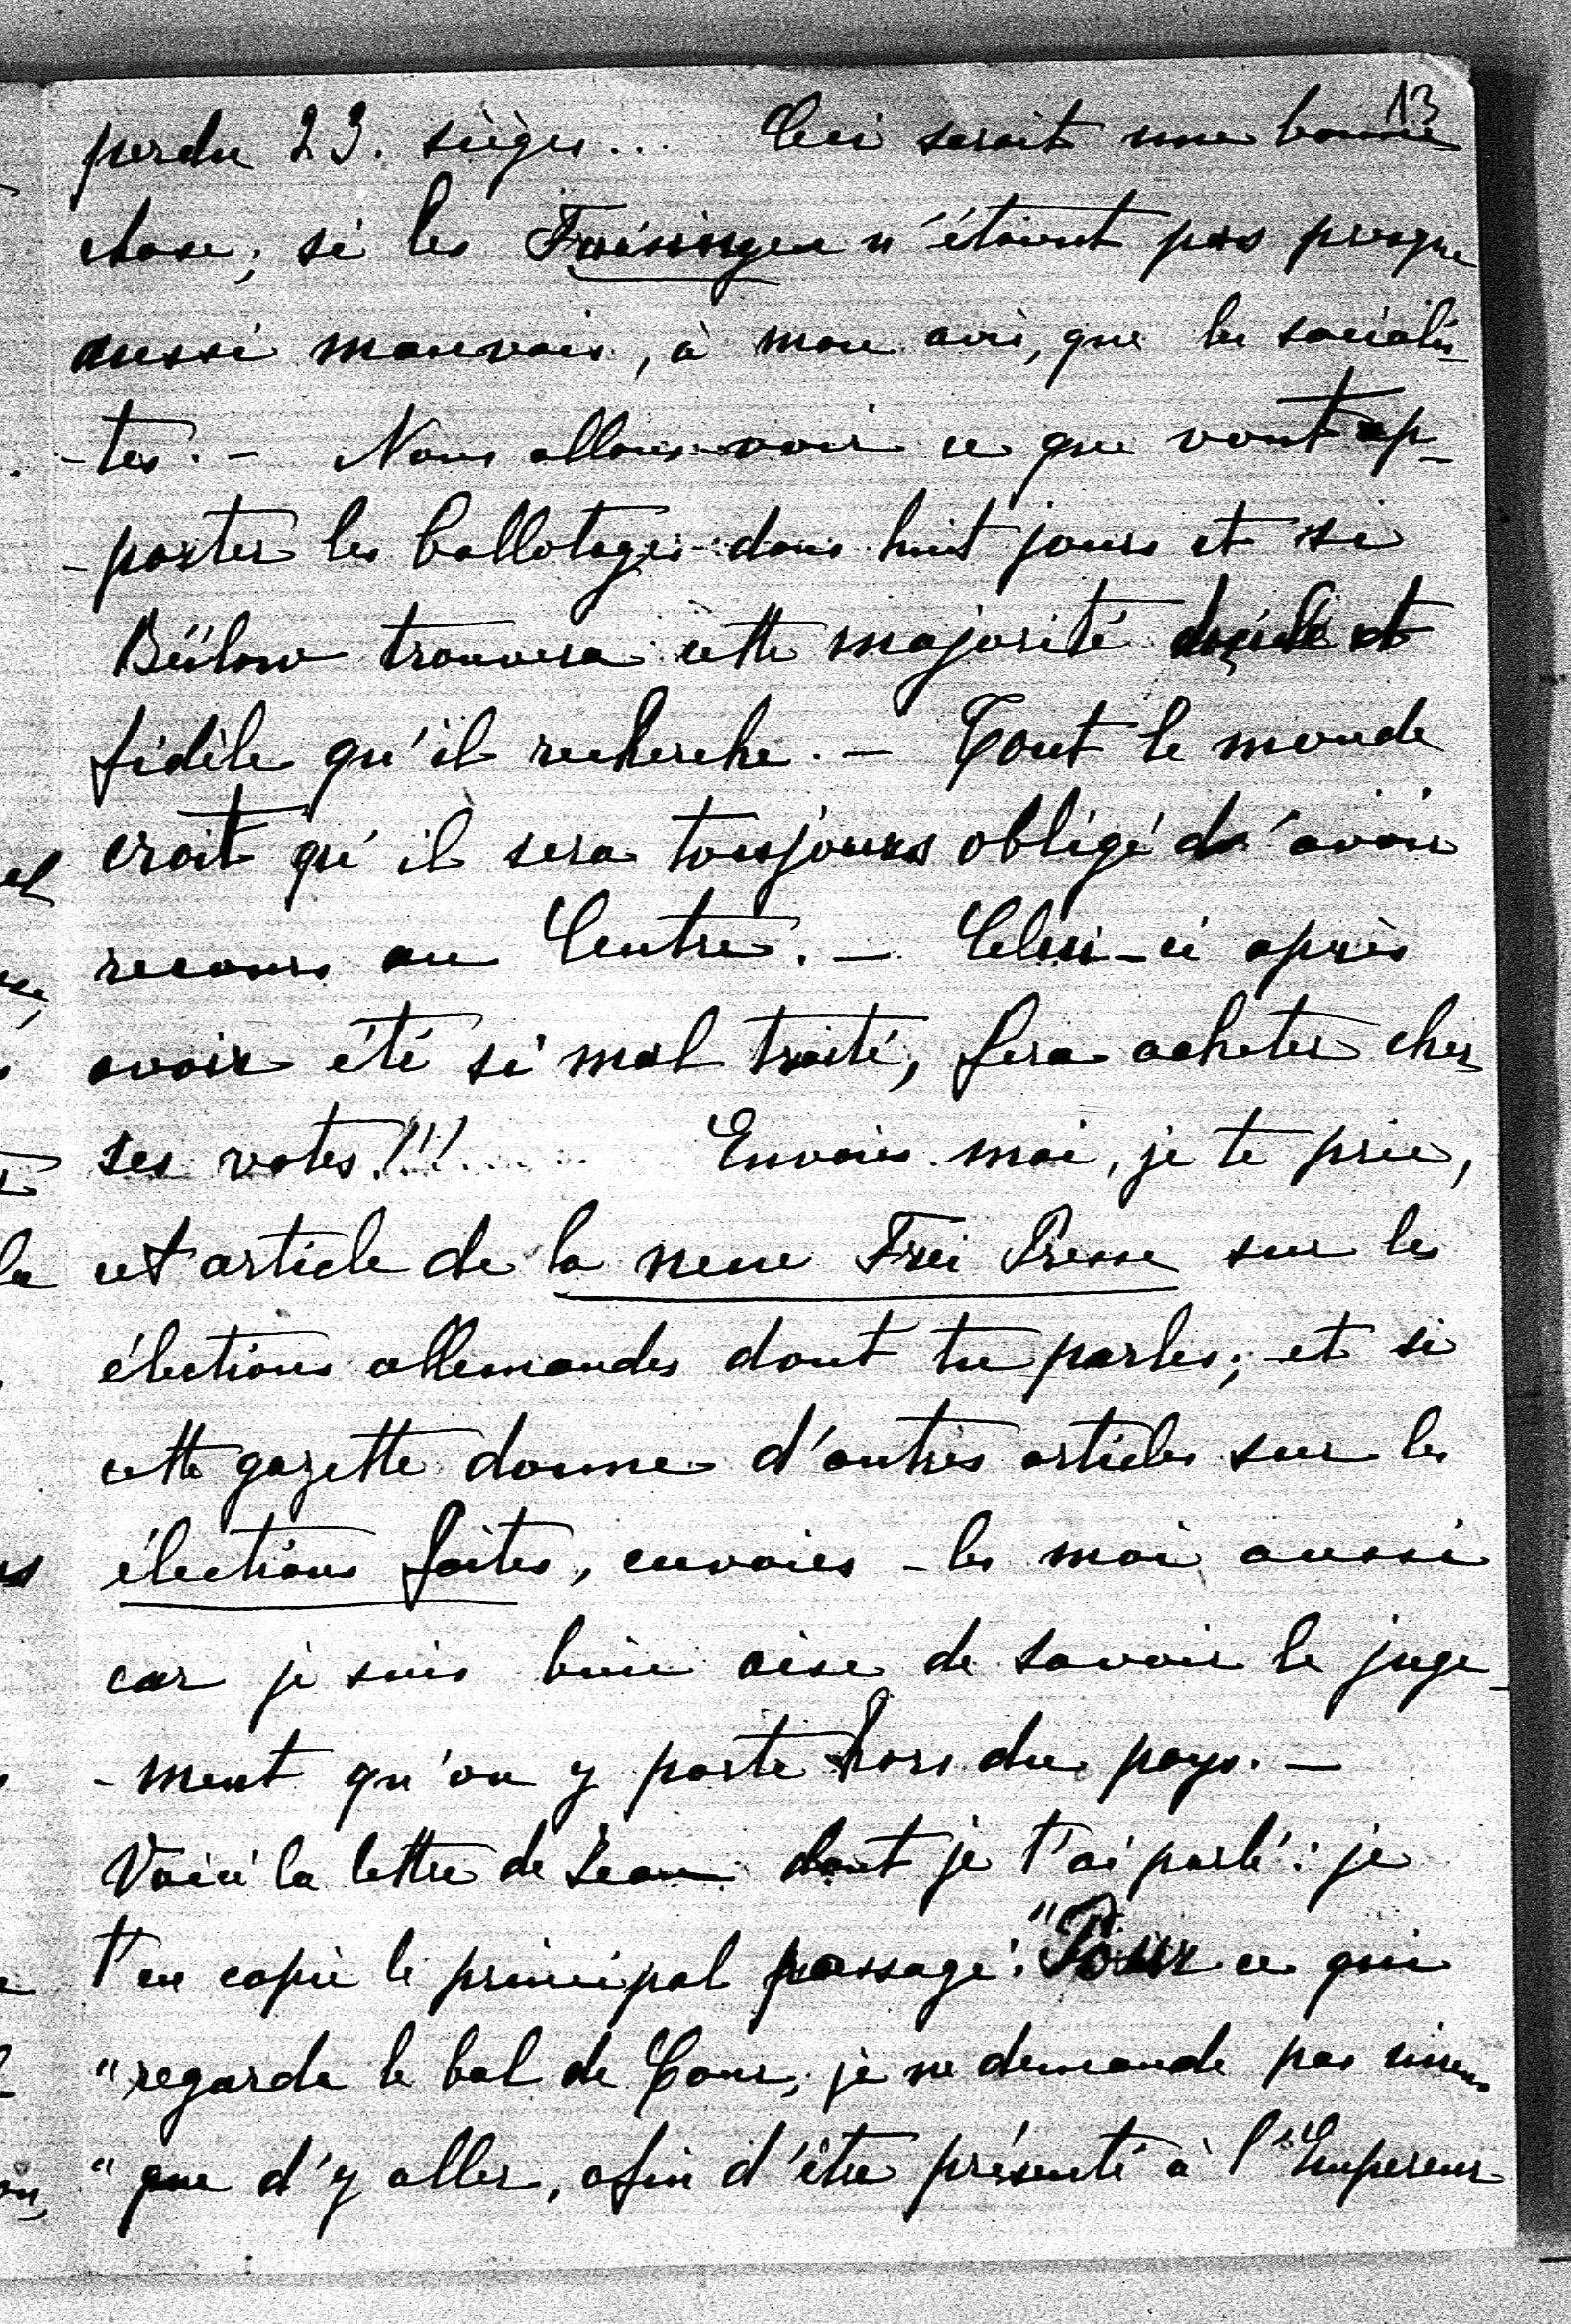 13
perdu 23. sièges... Ceci serait une bonne
chose; si les Freisinnigen n'étaient pas presque
aussi mauvais, à mon avis, que les socialis-
-tes. - Nous allons voir ce que vont ap-
-porter les ballotages dans huit jours et si
Bülow trouvera cette majorité docile et
fidèle qu'il recherche. - Tout le monde
croit qu'il sera toujours obligé d'avoir
recours au Centre. - Celui-ci après
avoir été si mal traité, fera acheter cher
ses votes!!!...... Envoies moi, je te prie,
cet article de la neue Frei Presse sur les
élections allemandes dont tu parles; et si
cette gazette donne d'autres articles sur les
élections faites, envoies-les moi aussi
car je suis bien aise de savoir le juge-
-ment qu'on y porte hors du pays. -
Voici la lettre de Jean dont je t'ai parlé: je
t'en copie le principal passage: "Pour ce qui
"regarde le bal de Cour, je ne demande pas mieux
"que d'y aller, afin d'être présenté à l'Empereur